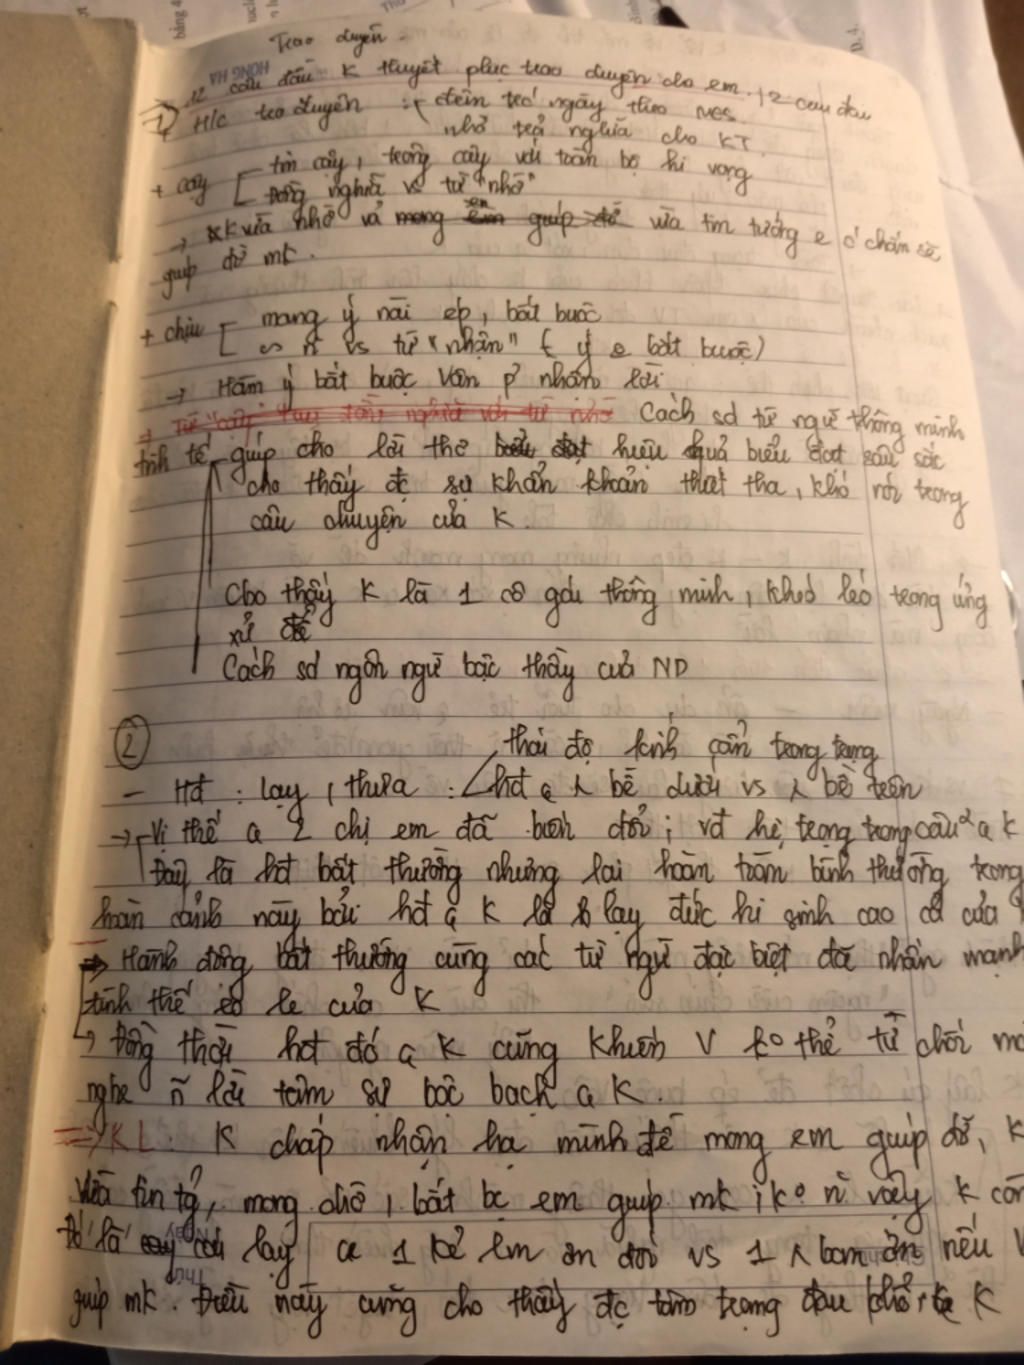 Trao duyên
12 câu đầu K thuyết phục trao duyên cho em. 2 câu đầu
① H/c trao duyên : đêm trc ngày theo MGS
nhờ trả nghĩa cho KT.
+ cậy [ tin cậy, trông cậy với toàn bộ hi vọng
Đồng nghĩa vs từ "nhờ"
→ K vừa nhờ vả mong em giúp đỡ vừa tin tưởng e ấ chắn sẽ
giúp đỡ mk.
+ chịu [ mang ý nài ép, bắt buộc
∽ n̂ vs từ "nhận" ( ý e bắt buộc)
→ Hàm ý bắt buộc Vân p² nhận lời
→ Từ "cậy" tuy đồng nghĩa với từ nhờ Cách sd từ ngữ thông minh
tinh tế giúp cho lời thơ biểu đạt hiệu quả biểu đạt sâu sắc
cho thấy đc sự khẩn khoản thiết tha, khó nói trong
câu chuyện của K.
Cho thấy K là 1 cô gái thông minh, khéo léo trong ứng
xử để
Cách sd ngôn ngữ bậc thầy của ND
② thái độ kính cẩn trang trọng
- Hđ : lạy, thưa : hđ ạ λ bề dưới vs λ bề trên
→ Vị thế ạ 2 chị em đã biến đổi ; vđ hệ trọng trong câu² ạ K
Đây là hđ bất thường nhưng lại hoàn toàn bình thường trong
hoàn cảnh này bởi hđ ạ K là lạy đức hi sinh cao cả của
⇒ Hành động bất thường cùng các từ ngữ đặc biệt đã nhấn mạnh
tình thế éo le của K
↳ Đồng thời hđ đó ạ K cũng khiến V k° thể từ chối mà
nghe n̂ lời tâm sự bộc bạch ạ K.
⇒ KL: K chấp nhận hạ mình để mong em giúp đỡ, K
Vừa tin tg, mong chờ, bắt bc em giúp mk ; k° n̂ vậy K còn
Đó là cái lạy ạ 1 kẻ làm ơn đối vs 1 λ ban ơn nếu V
giúp mk. Điều này cũng cho thấy đc tâm trạng đau khổ, K